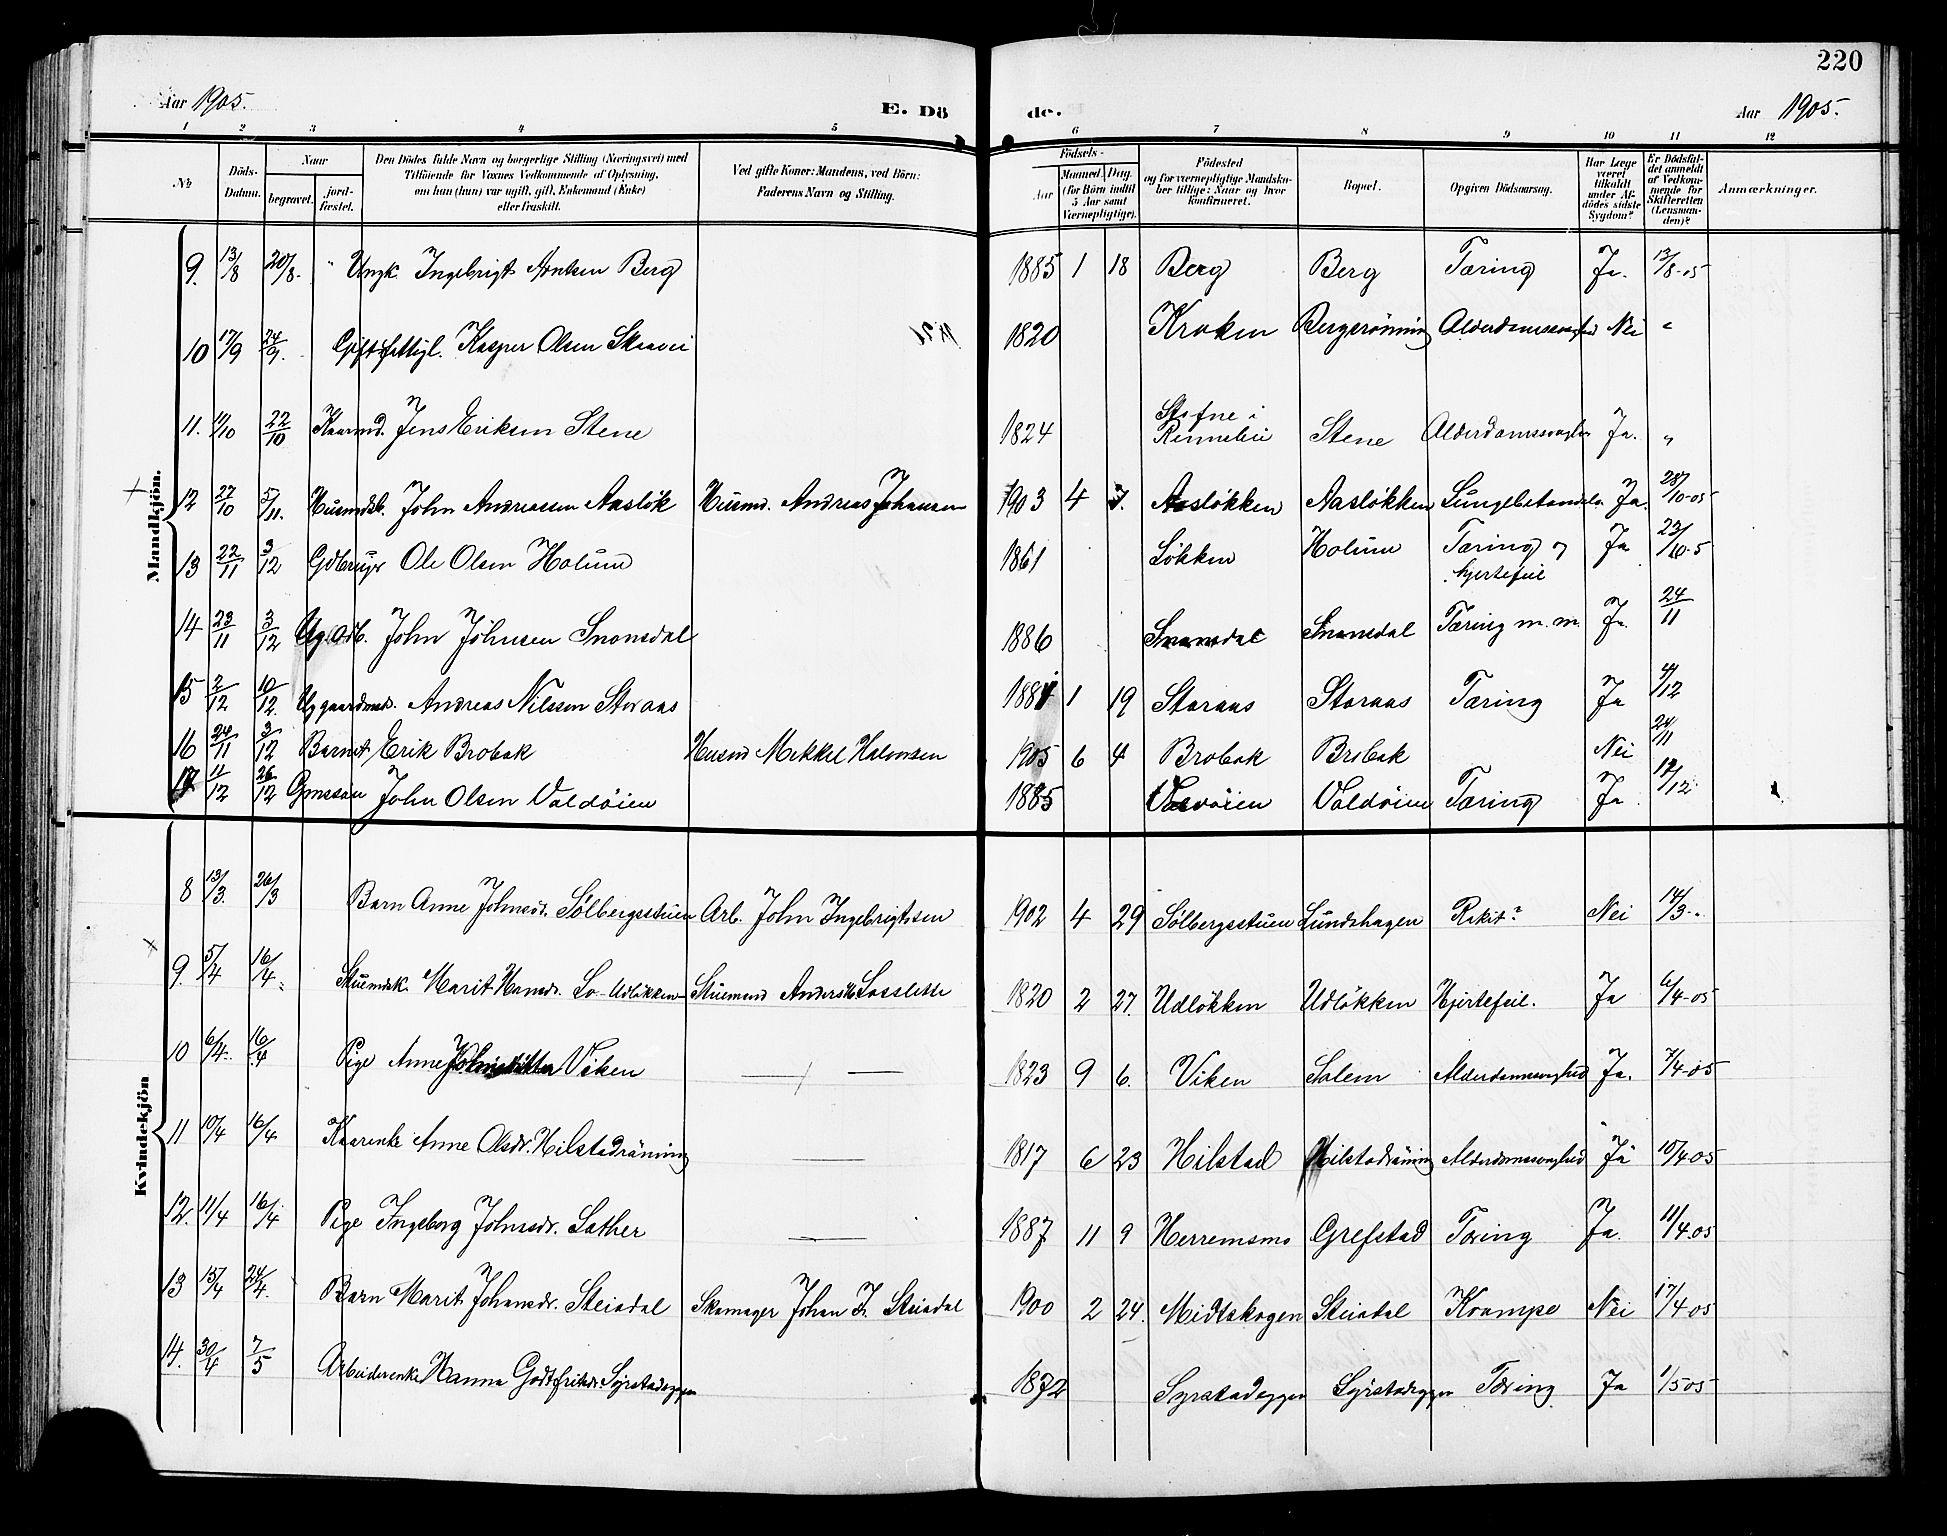 220
Aar 1905.
E. Dö de.
Aar 1905.
1 2 3 4 5 6 7 8 9 10 11 12
№
Döds-Datum.
Naar
begravet.
jord-fæstet.
Den Dödes fulde Navn og borgerlige Stilling (Næringsvei) med
Tilföiende for Voxnes Vedkommende af Oplysning,
om han (hun) var ugift, gift, Enkemand (Enke)
eller fraskilt.
Ved gifte Koner: Mandens, ved Börn:
Faderens Navn og Stilling.
Födsels-
Aar
Maaned. Dag.
(for Börn indtil
5 Aar samt
Værnepligtige).
Födested
og for værnepligtige Mandska-
ber tillige: Naar og hvor
konfirmeret.
Bopæl.
Opgiven Dödsaarsag.
Har Læge
været
tilkaldt
under Af-
dödes sidste
Sygdom?
Er Dödsfal-
det anmeldt
af Vedkom-
mende for
Skifteretten
(Lensman-
den)?
Anmærkninger.
Mandkjön.
9. 13/8 20/8. " Ungk. Ingebrigt Arntsen Berg 1885 1 18 Berg Berg Tæring Ja. 13/8-05
10 17/9 24/9. Gift fattigl. Kasper Olsen 1820 Kroken Bergsrönning Alderdomssvaghed Nei "
11. 11/10 22/10 Kaarmd. Jens Eriksen Stene 1824 Stofne i Rennebu Stene Alderdomssvaghed Ja. "
12 27/10 5/11. Husmdsb. John Andreassen Aasløk Husmd. Andreas Johansen 1903 4 7. Aasløkken Aasløkken Lungebetændelse Ja. 28/10-05
13 22/11 3/12 Gdbruger Ole Olsen Holum 1861 Løkken Holum Tæring og hjertefeil Ja 23/10-5
14 23/11 3/12 Ug. arb. John Johnsen Snonsdal 1886 Snonsdal Snonsdal Tæring m.m. Ja. 24/11
15 2/12 10/12 Ug gaardmds. Andreas Nilssen Storaas 1881 1 19 Storaas Storaas Tæring Ja 4/12
16 24/11 3/12 Barnet Erik Brobak Husmd Mikkel Halvorsen 1905 6 4 Brobak Brobak Nei 24/11
17 11/12 26/12 Gmssøn John Olsen Valdøien 1885 Valdøien Valdøien Tæring Ja 12/12
Kvindekjön
8 13/3. 26/3 Barn Anne Johnsd. Sølbergsstuen Arb. John Ingebrigtsen 1902 4 29 Sølbergsstuen Lundshagen Rakit? Nei 14/3-"
9. 5/4 16/4. Stuemdsk. Marit Hansdr. Lo-Udløkken Stuemand Anders Losslette 1820 2 27. Udløkken Udløkken Hjertefeil. Ja 6/4-05
10 6/4. 16/4 Pige Anne Johnsdatter Viken — — 1823 9 6. Viken Solem Alderdomssvaghed Ja. 7/4-05
11 10/4 16/4 Kaarenke Anne Olsdr. Hilstadrønning — 1817 6 23 Hilstad Hilstadrønning Alderdomssvaghed Ja 10/4 05
12. 11/4 16/4 Pige Ingeborg Johnsdr. Sæther — 1887 11 9 Herremsmo Grefstad Tæring Ja. 11/4 05
13 15/4 24/4. Barn Marit Johansdr. Steiadal Skomager Johan J. Steiadal 1900 2 24. Midtskogen Steiadal Krampe Nei 17/4 05
14. 30/4 7/5 Arbeiderenke Hanna Godtfritsdr. Syrstadeggen 1872 Syrstadeggen Syrstadeggen Tæring Ja 1/5 05